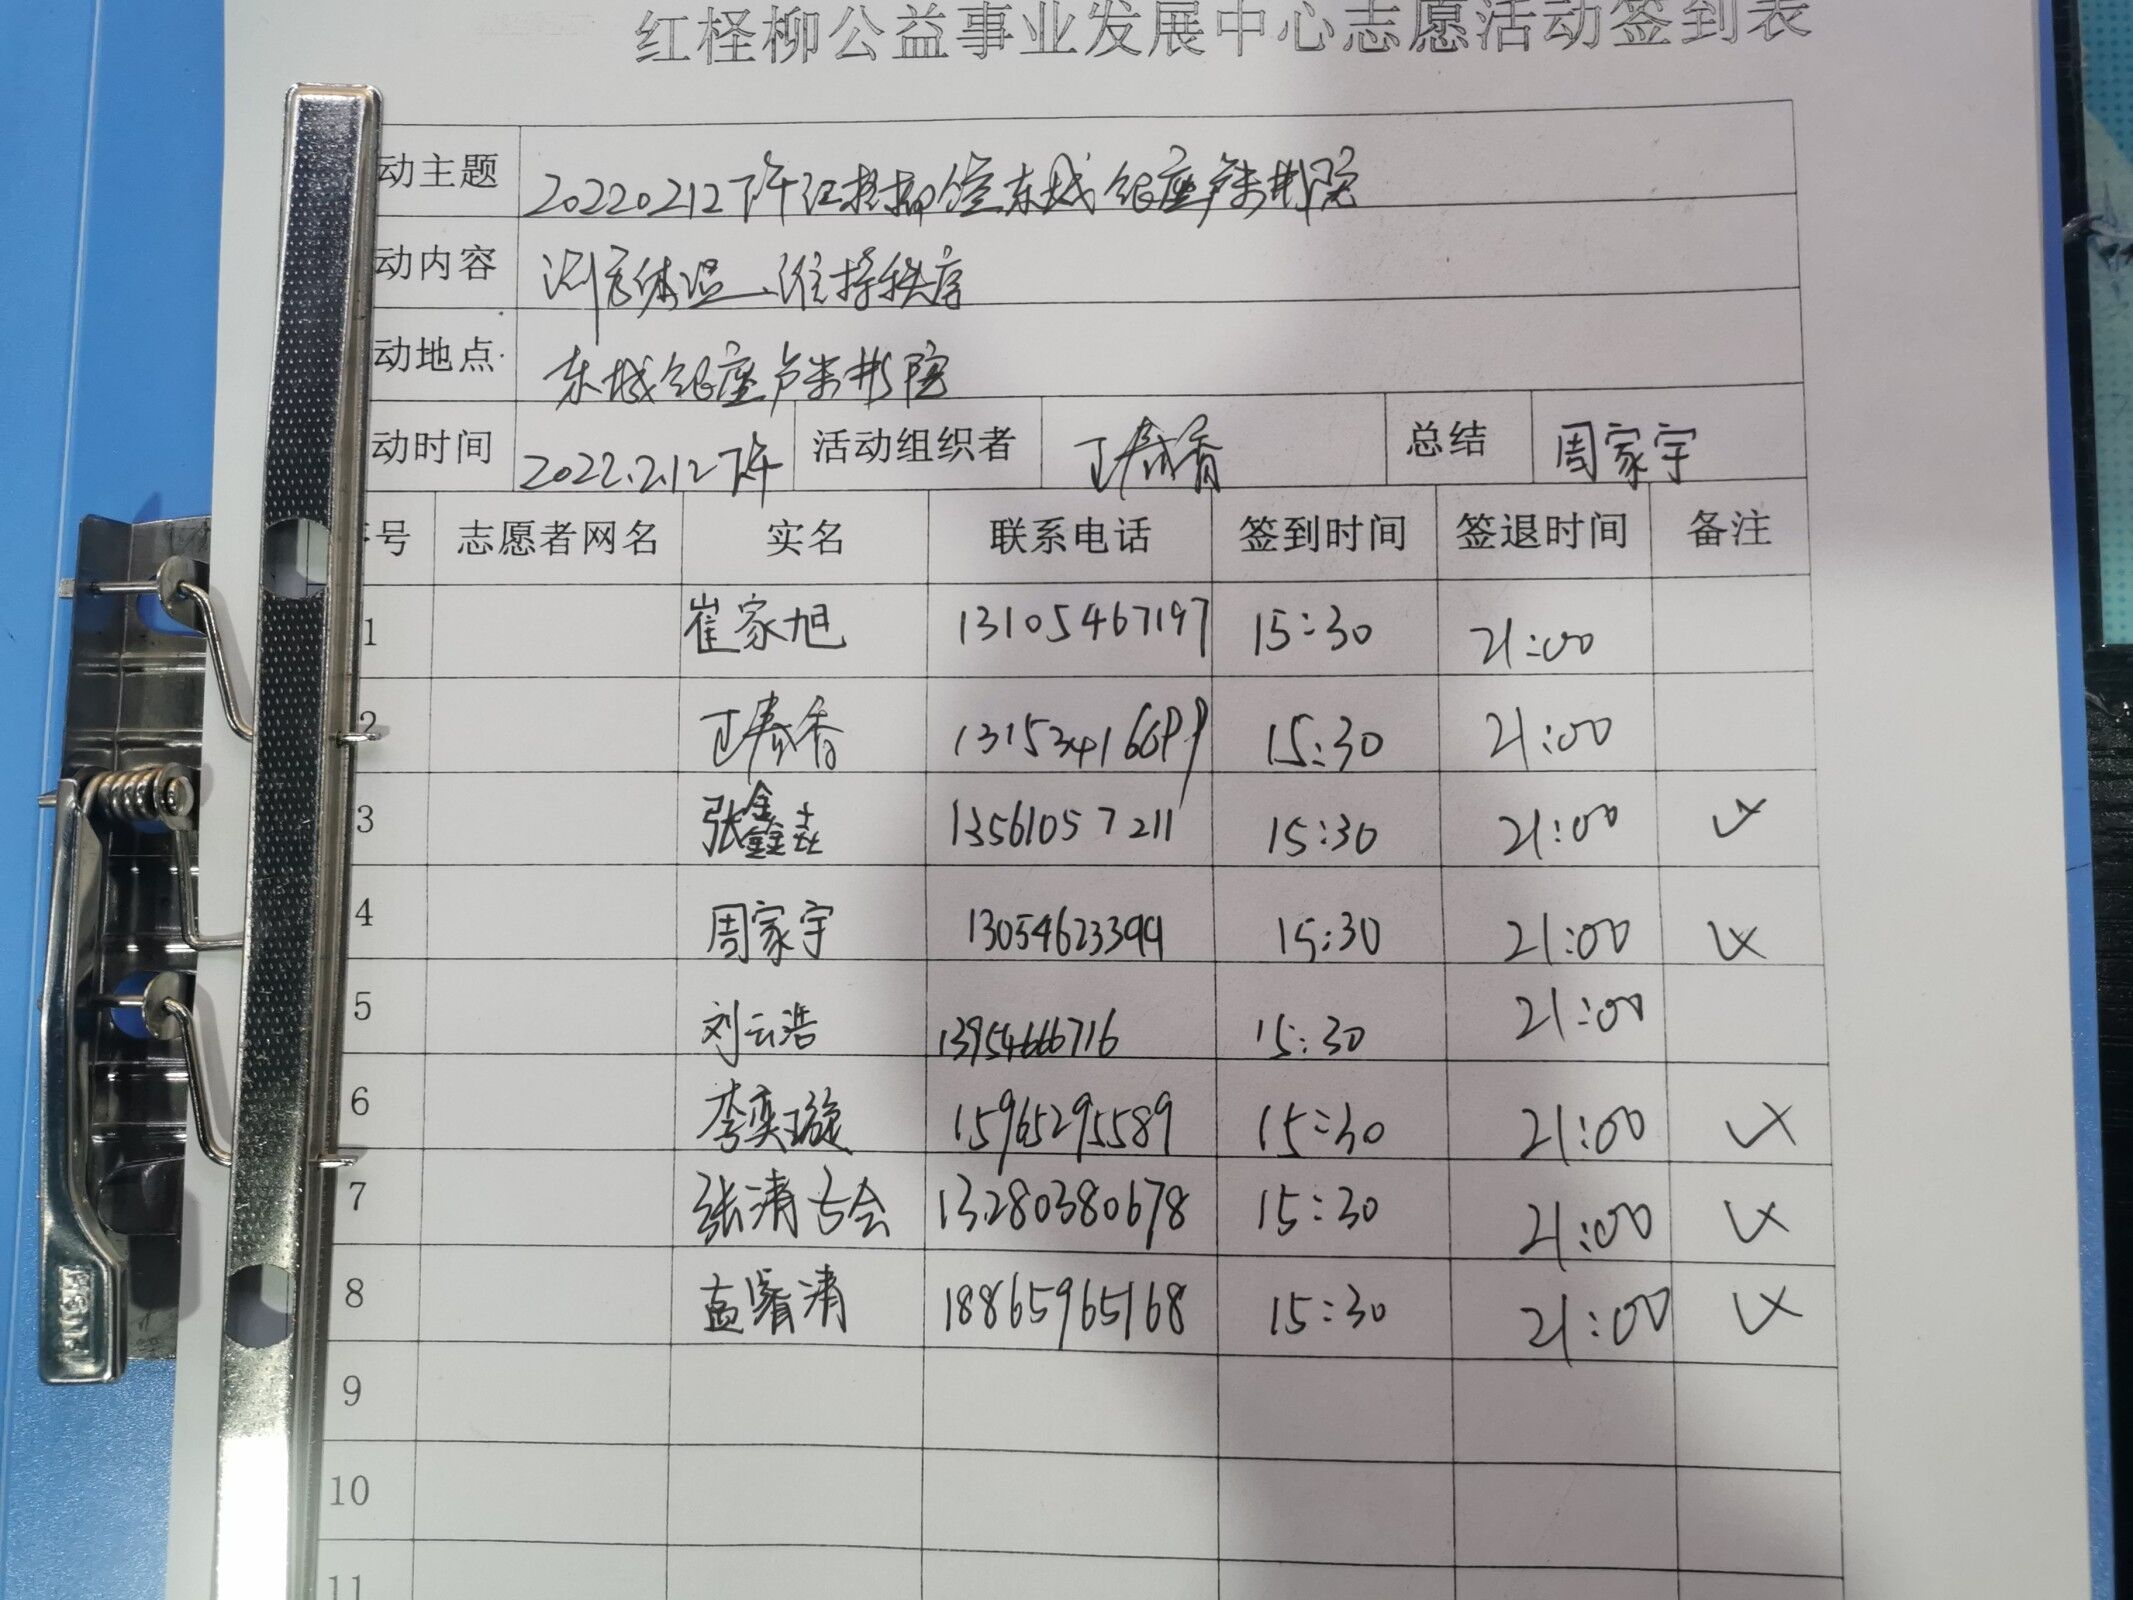 红柽柳公益事业发展中心志愿活动签到表
动主题 20220212下午红柽柳值东城银座卢米影院
动内容 测量体温、维持秩序
动地点 东城银座卢米影院
动时间 2022.2.12下午 活动组织者 丁春香 总结 周家宇
号 志愿者网名 实名 联系电话 签到时间 签退时间 备注
1 崔家旭 13105467197 15:30 21:00
2 丁春香 15:30 21:00
3 张鑫垚 13561057211 15:30 21:00
4 周家宇 13054623399 15:30 21:00
5 刘云浩 13954666716 15:30 21:00
6 李奕璇 15965295589 15:30 21:00
7 张清 13280380678 15:30 21:00
8 孟睿清 18865965168 15:30 21:00
9
10
11